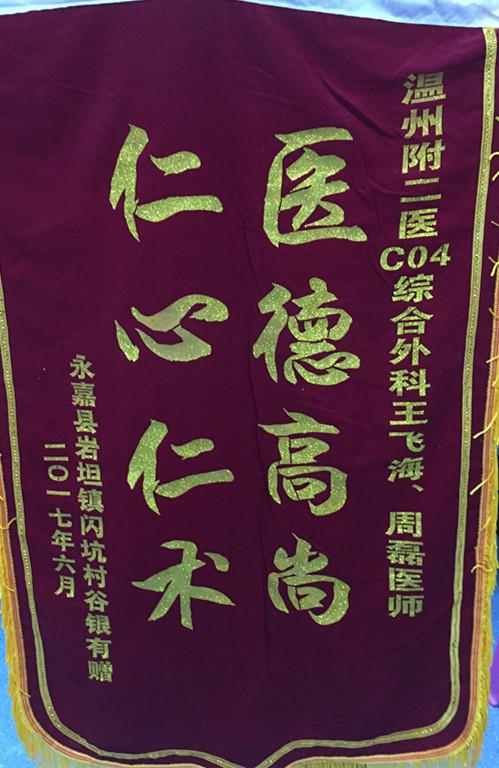 温州附二医C04综合外科王飞海、周磊医师
医德高尚
仁心仁术
永嘉县岩坦镇闪坑村谷银有赠
二〇一七年六月